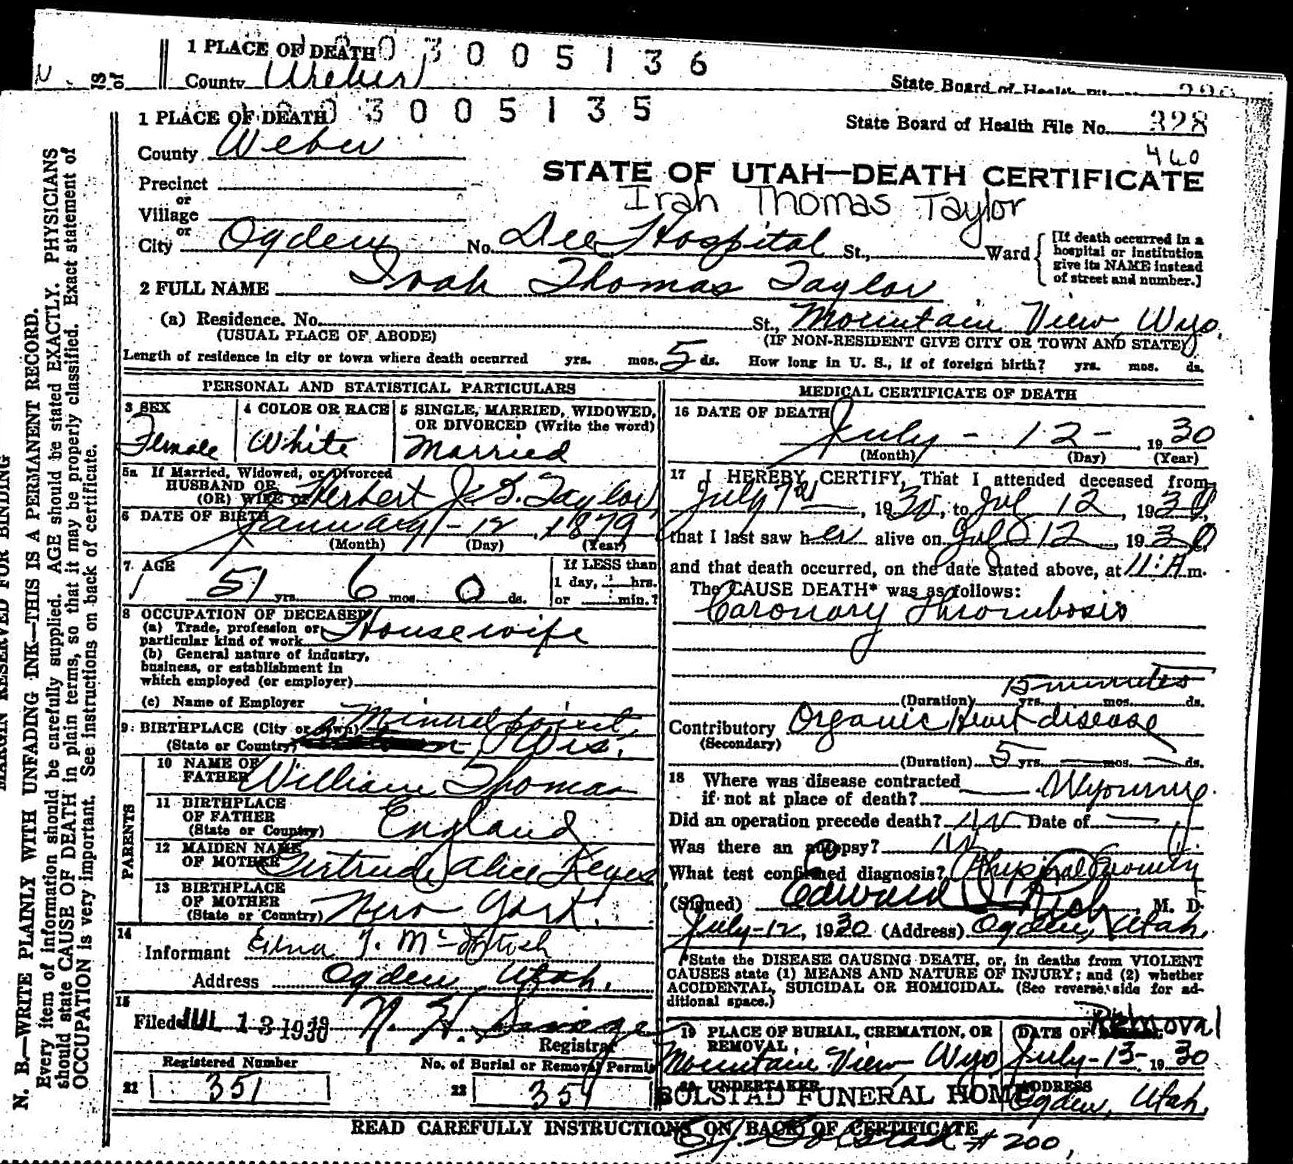 1 PLACE OF DEATH 3005136
County Weber
State Board of Health File No.
1 PLACE OF DEATH 3005135
State Board of Health File No. 328
460
County Weber
STATE OF UTAH—DEATH CERTIFICATE
Precinct
or
Village
Irah Thomas Taylor
or
City Ogden No. Dee Hospital St., Ward
[If death occurred in a
hospital or institution
give its NAME instead
of street and number.]
2 FULL NAME Irah Thomas Taylor
(a) Residence. No. St., Mountain View, Wyo.
(USUAL PLACE OF ABODE) (IF NON-RESIDENT GIVE CITY OR TOWN AND STATE)
Length of residence in city or town where death occurred yrs. mos. 5 ds. How long in U. S., if of foreign birth? yrs. mos. ds.
PERSONAL AND STATISTICAL PARTICULARS
3 SEX 4 COLOR OR RACE 5 SINGLE, MARRIED, WIDOWED,
OR DIVORCED (Write the word)
Female White Married
5a If Married, Widowed, or Divorced
HUSBAND OF
(OR) WIFE OF Herbert J. S. Taylor
6 DATE OF BIRTH January - 12, 1879
(Month) (Day) (Year)
7 AGE If LESS than
1 day, hrs.
51 yrs. 6 mos. 0 ds. or min.?
8 OCCUPATION OF DECEASED
(a) Trade, profession or
particular kind of work Housewife
(b) General nature of industry,
business, or establishment in
which employed (or employer)
(c) Name of Employer
9 BIRTHPLACE (City or town) Mineral point,
(State or Country) Wis.
PARENTS
10 NAME OF
FATHER William Thomas
11 BIRTHPLACE
OF FATHER
(State or Country) England
12 MAIDEN NAME
OF MOTHER Gertrude Alice Keyes
13 BIRTHPLACE
OF MOTHER
(State or Country) New York.
14
Informant Edna T. McIntosh
Address Ogden, Utah.
15
Filed JUL 13 1930 N. H. Savage
Registrar
Registered Number No. of Burial or Removal Permit
21 351 22 354
MEDICAL CERTIFICATE OF DEATH
16 DATE OF DEATH
July - 12 - 1930
(Month) (Day) (Year)
17 I HEREBY CERTIFY, That I attended deceased from
July 7th, 1930, to Jul 12, 1930
that I last saw her alive on Jul 12, 1930,
and that death occurred, on the date stated above, at 11:A m.
The CAUSE DEATH* was as follows:
Coronary Thrombosis
15 minutes
(Duration) yrs. mos. ds.
Contributory Organic Heart disease
(Secondary)
(Duration) 5 yrs. mos. ds.
18 Where was disease contracted
if not at place of death? Wyoming
Did an operation precede death? No Date of
Was there an autopsy? No
What test confirmed diagnosis? Physical
(Signed) Edward Rich, M. D.
July-12, 1930 (Address) Ogden, Utah.
*State the DISEASE CAUSING DEATH, or, in deaths from VIOLENT
CAUSES state (1) MEANS AND NATURE OF INJURY; and (2) whether
ACCIDENTAL, SUICIDAL OR HOMICIDAL. (See reverse side for ad-
ditional space.)
19 PLACE OF BURIAL, CREMATION, OR
REMOVAL
Mountain View, Wyo.
DATE OF Removal
July-13-1930
20 UNDERTAKER ADDRESS
BOLSTAD FUNERAL HOME Ogden, Utah.
READ CAREFULLY INSTRUCTIONS ON BACK OF CERTIFICATE
#200,
MARGIN RESERVED FOR BINDING
N. B.—WRITE PLAINLY WITH UNFADING INK—THIS IS A PERMANENT RECORD.
Every item of information should be carefully supplied. AGE should be stated EXACTLY. PHYSICIANS
should state CAUSE OF DEATH in plain terms, so that it may be properly classified. Exact statement of
OCCUPATION is very important. See instructions on back of certificate.